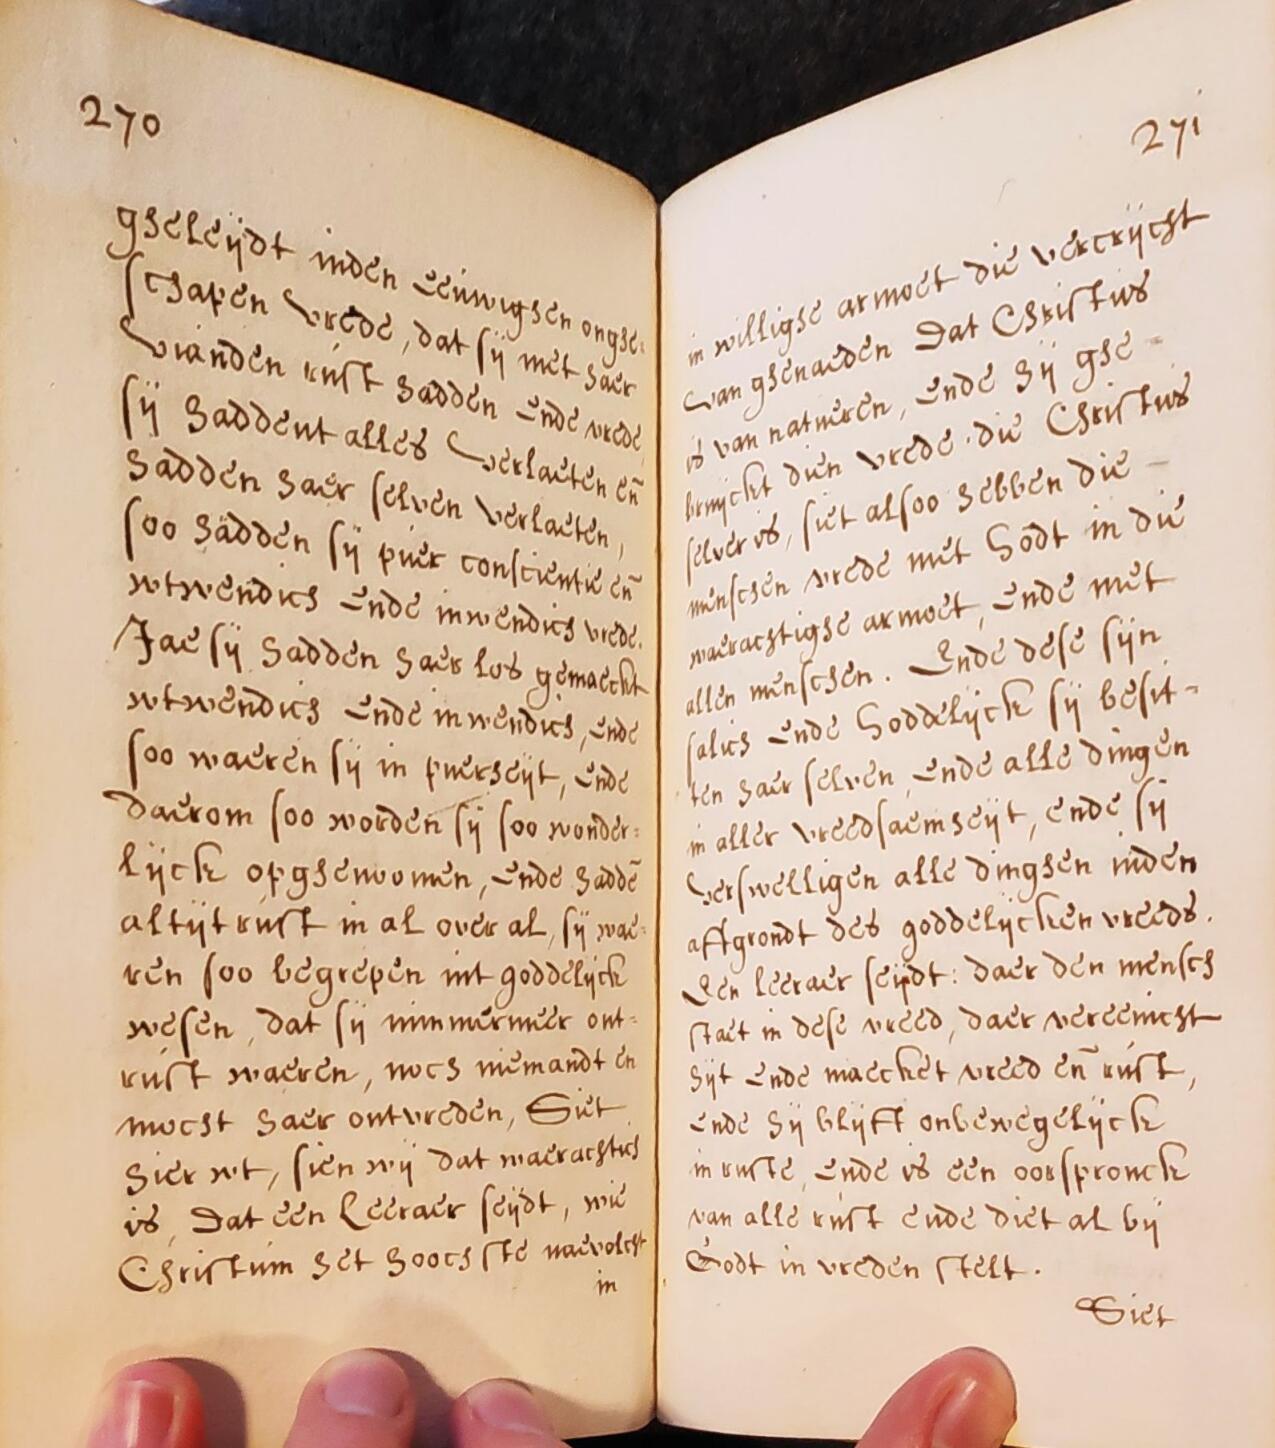 270
gheleijdt inden eeuwighen onghe:
schapen vrede, dat sij met haer
vianden rust hadden ende vrede,
sij haddent alles verlaeten eñ
hadden haer selven verlaeten,
soo hadden sij puer conscientie eñ
wtwendich ende inwendich vrede.
Jae sij hadden haer los gemaeckt
wtwendich ende inwendich, ende
soo waeren sij in puerheijt, ende
daerom soo worden sij soo wonder:
lijck opghenoomen, ende haddē
altijt rust in al over al, sij wae:
ren soo begrepen int goddelijck
wesen, dat sij nimmermeer ont-
rust waeren, noch niemandt en
mocht haer ontvreden, Siet
hier wt, sien wij dat waerachtich
is, Dat een Leeraer seijdt, wie
Christum het hoochste naevolcht
in
271
in willighe armoet die vercrijcht
van ghenaeden Dat Christus
is van natueren, ende hij ghe-
bruijckt dien vrede die Christus
selver is, siet alsoo hebben die
menschen vrede met Godt in die
waerachtighe armoet, ende met
allen menschen. Ende dese sijn
salich ende Goddelijck sij besit-
ten haer selven, ende alle dingen
in aller vreedsaemheijt, ende sij
verswelligen alle dinghen inden
affgrondt des goddelijcken vreeds.
Een leeraer seijdt: daer den mensch
staet in dese vreed, daer vereenicht
hijt ende maecket vreed eñ rust,
ende hij blijft onbewegelijck
in ruste, ende is een oorspronck
van alle rust ende diet al bij
Godt in vreden stelt.
Siet